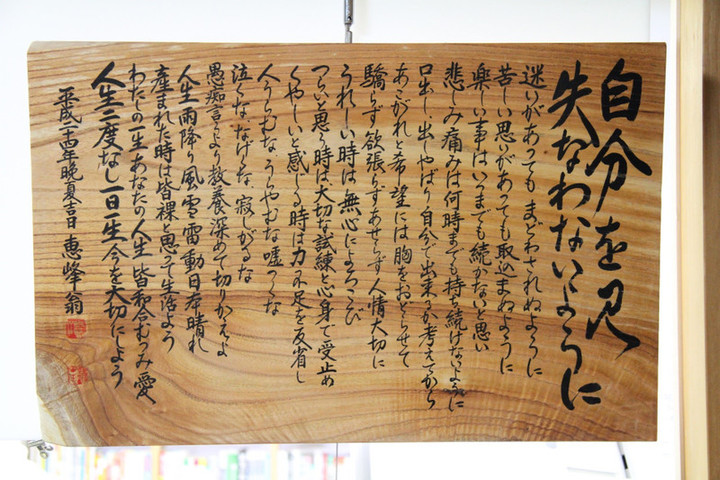 自分を見
失なわないように
迷いがあっても まどわされぬように
苦しい思いがあっても取込まぬように
楽しい事はいつまでも続かないと思い
悲しみ痛みは何時までも持ち続けないように
口出し、出しやばり 自分で出来るか考えてから
あこがれと希望には胸をおどらせて
驕らず 欲張らずあせらず人情大切に
うれしい時は無心によろこび
つらいと思う時は大切な試練と心身で受止め
くやしいと感じる時は力不足を反省し
人うらむな、うらやむな 嘘つくな
泣くな なげくな 寂しがるな
愚痴言うより教養深めて切りかえよ
人生雨降り風雪雷動日本晴れ
産まれた時は皆裸と思って生活よう
わたしの一生あなたの人生皆和合むつみ愛
人生二度なし一日一生今を大切にしよう
平成二十四年晩夏吉日 恵峰翁